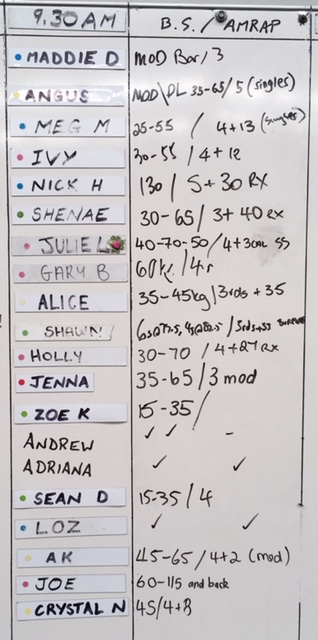 9.30AM B.S. / AMRAP
MADDIE D MOD Bar / 3
ANGUS MOD\DL 35-65/ 5 (singles)
MEG M 25-55 / 4+13 (singles)
IVY 30-55 / 4+12
NICK H 130 / 5+30 RX
SHENAE 30-65 / 3+40 RX
JULIE L 40-70-50 / 4+3cal SS
GARY B 60k / 4r
ALICE 35-45kg / 3rds + 35
SHAWN
HOLLY 30-70 / 4+27 RX
JENNA 35-65 / 3 mod
ZOE K 15-35 /
ANDREW ✓ ✓ -
ADRIANA ✓ ✓
SEAN D 15-35 / 4
LOZ ✓ ✓
AK 45-65 / 4+2 (mod)
JOE 60-115 and back
CRYSTAL N 45 / 4+